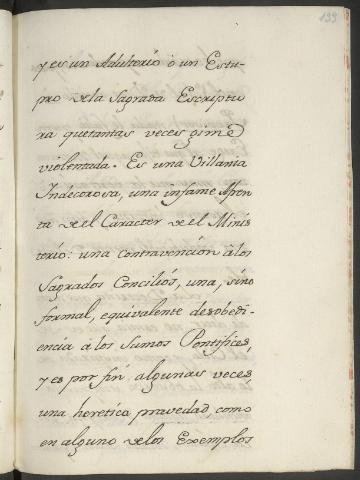 199
y es un Adulterio ò un Estu-
pro de la Sagrada Escriptu
ra que tantas veces gime
violentada. Es una Villania
Indecorosa, una infame Afren
ta de el Caracter de el Minis
terio: una contravencion â los
Sagrados Concilios, una, sino
formal, equivalente desobedi-
encia à los Sumos Pontifices,
y es por fin algunas veces
una heretica pravedad, como
en alguno de los Exemplos